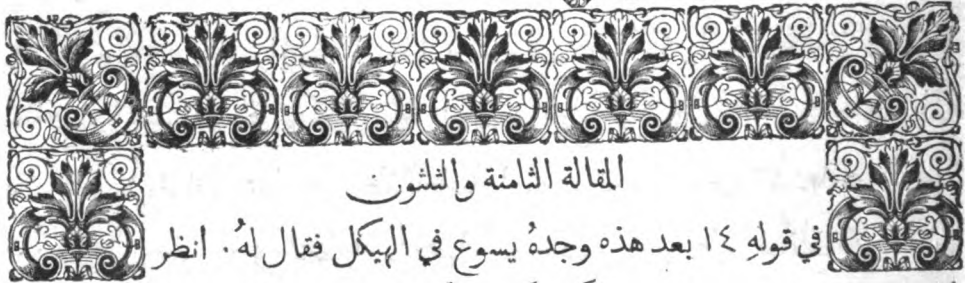 المقالة الثامنة والثلثون
في قولهِ ١٤ بعد هذه وجدهُ يسوع في الهيكل فقال لهُ ٠ انظر